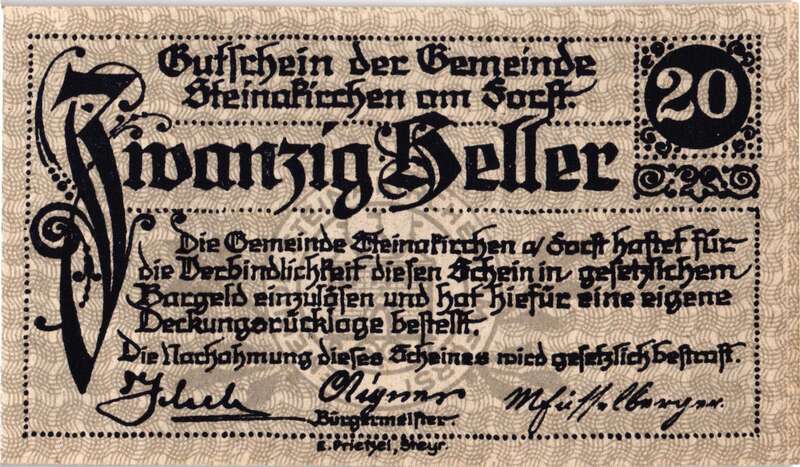 Gutschein der Gemeinde
Steinakirchen am Forst.
20
Zwanzig Heller
Die Gemeinde Steinakirchen a/Forst haftet für
die Verbindlichkeit diesen Schein in gesetzlichem
Bargeld einzulösen und hat hiefür eine eigene
Deckungsrücklage bestellt.
Die Nachahmung dieses Scheines wird gesetzlich bestraft.
Aigner
Bürgermeister.
E. Prietzel, Steyr.